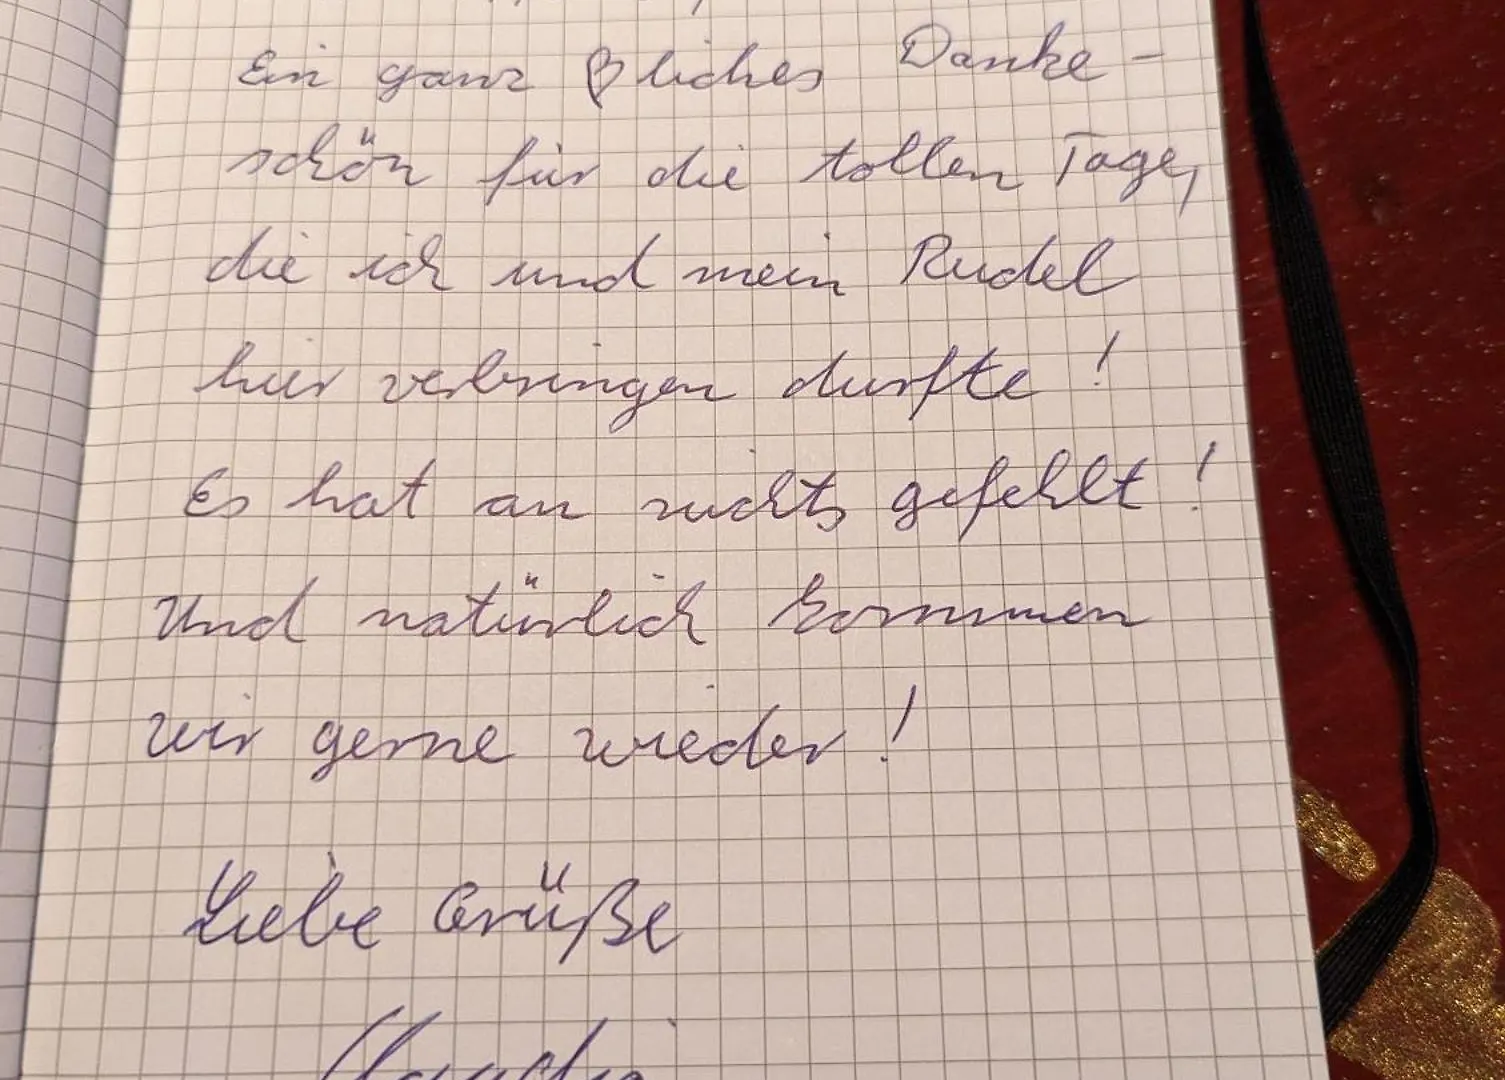 Ein ganz ♡liches Danke-
schön für die tollen Tage,
die ich und mein Rudel
hier verbringen durfte!
Es hat an nichts gefehlt!
Und natürlich kommen
wir gerne wieder!
Liebe Grüße